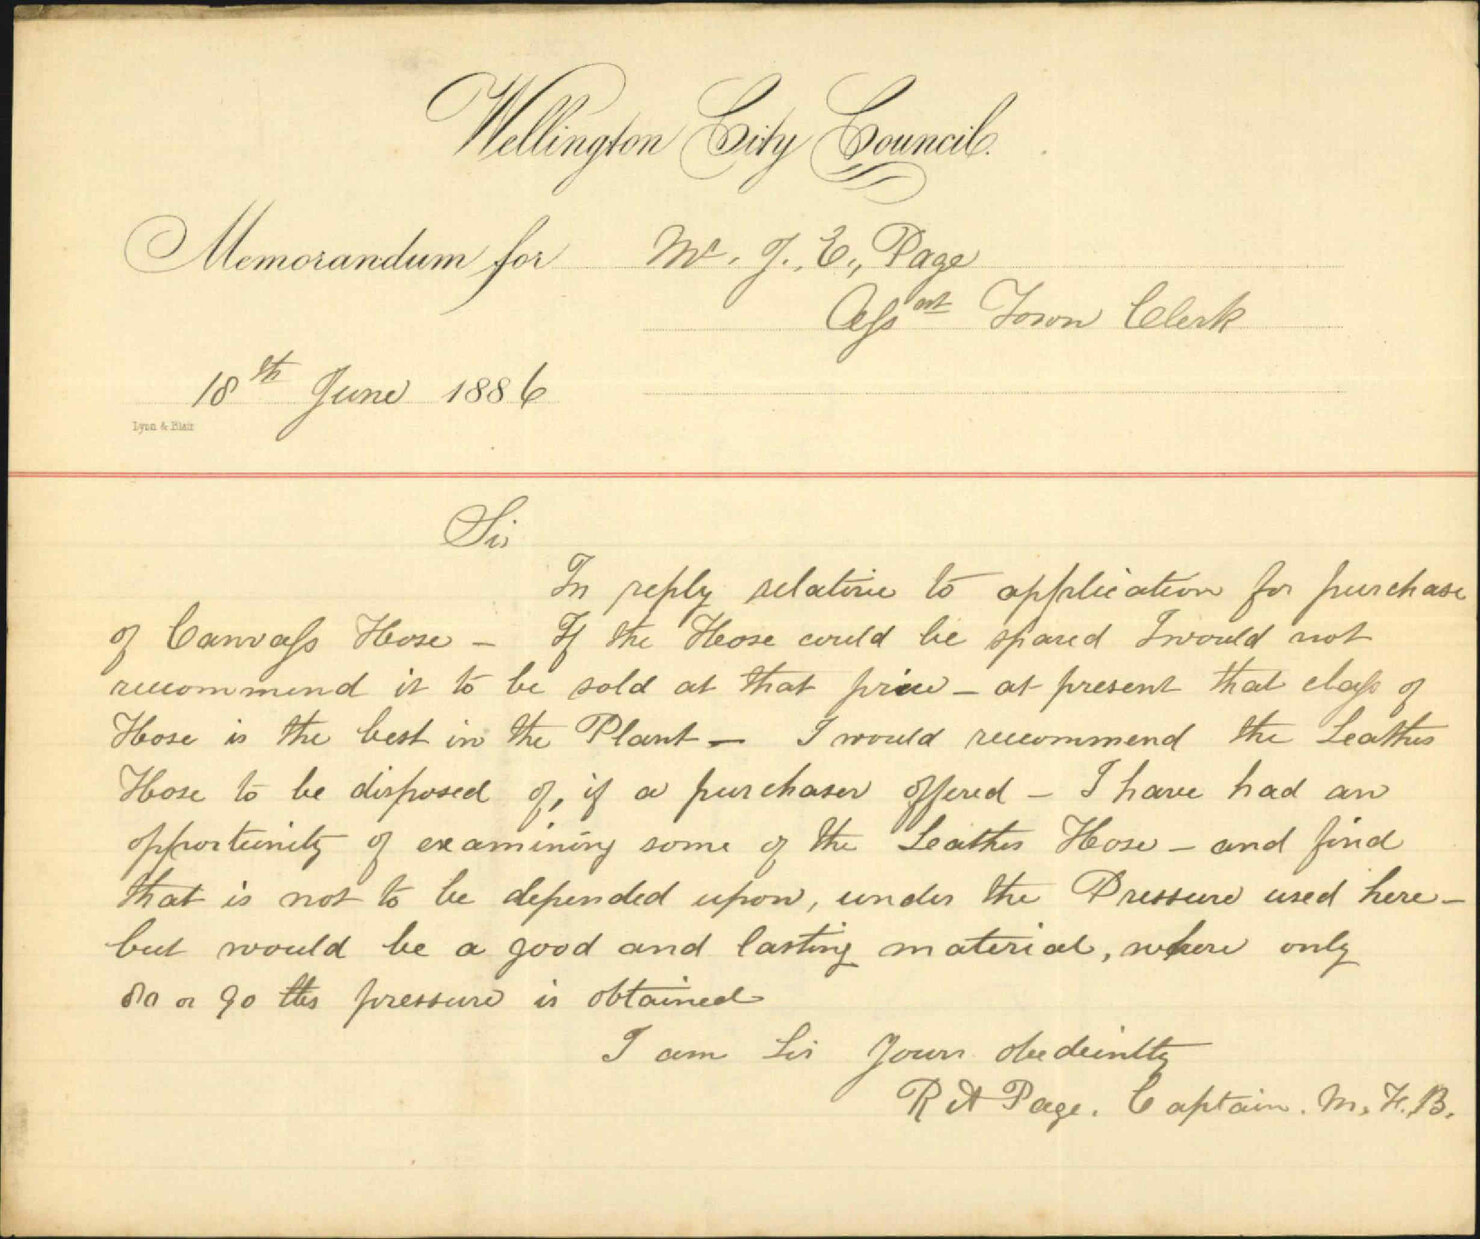 Wellington City Council.
Memorandum for Mr. J. E., Page
Assant Town Clerk
18th June 1886
Lynn & Blair
Sir
In reply relative to application for purchase
of Canvass Hose – If the Hose could be spared I would not
recommend it to be sold at that price – at present that class of
Hose is the best in the Plant – I would recommend the Leather
Hose to be disposed of, if a purchaser offered – I have had an
opportunity of examining some of the Leather Hose – and find
that is not to be depended upon, under the Pressure used here –
but would be a good and lasting material, where only
80 or 90 lbs pressure is obtained
I am Sir Yours obedeintly
R A Page. Captain. M. F. B.